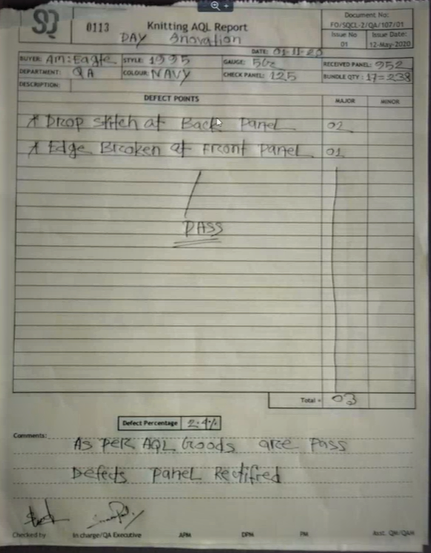 SQ 0113 Knitting AQL Report
Document No:
FO/SQCL-2/QA/107/01
Issue No Issue Date:
01 12-May-2020
DAY
DATE: 01-11-23
BUYER: Am:Eagle STYLE: 1995 GAUGE: 5GG RECEIVED PANEL: 952
DEPARTMENT: QA COLOUR: NAVY CHECK PANEL: 125 BUNDLE QTY: 17=238
DESCRIPTION:
DEFECT POINTS MAJOR MINOR
* Drop stitch at Back Panel 02
* Edge Brocken at Front Panel 01
PASS
Total = 03
Defect Percentage 2.4%
Comments:
As per AQL Goods are pass
Defects panel Rectified
Checked by In charge/QA Executive APM DPM PM Asst. QM/QAM